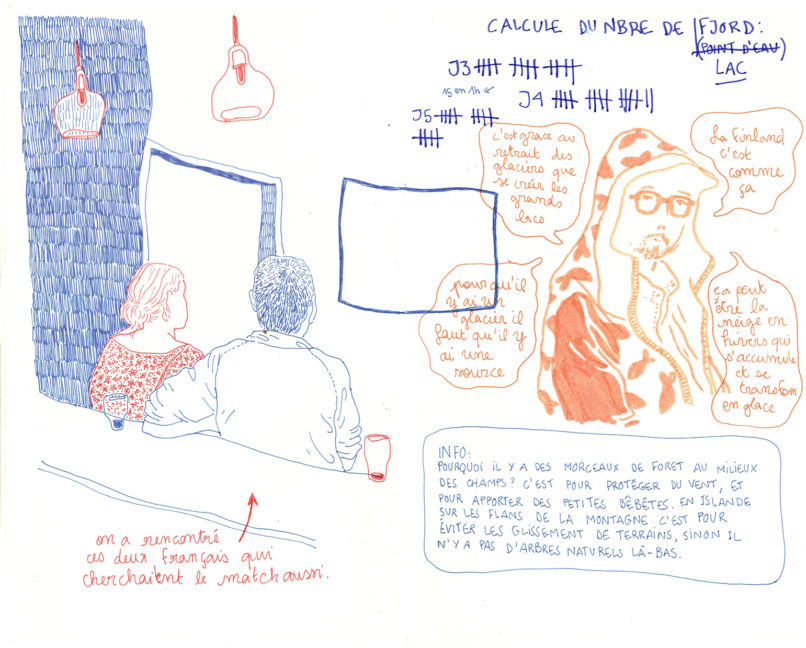 CALCULE DU NBRE DE FJORD:
(POINT D'EAU)
LAC
J3
15 en 1h
J4
J5
c'est grace au
retrait des
glaciers que
se créer les
grands
lacs
La Finland
c'est
comme
ça
pourqu'il
y'ai un
glacier il
faut qu'il y
ai une
source
ça peut
être la
neige en
hivers qui
s'accumule
et se
transform
en glace
on a rencontré
ces deux français qui
cherchaient le match aussi.
INFO:
POURQUOI IL Y A DES MORCEAUX DE FORET AU MILIEUX
DES CHAMPS? C'EST POUR PROTÉGER DU VENT, ET
POUR APPORTER DES PETITES BÊBÊTES. EN ISLANDE
SUR LES FLANS DE LA MONTAGNE C'EST POUR
ÉVITER LES GLISSEMENT DE TERRAINS, SINON IL
N'Y A PAS D'ARBRES NATURELS LÀ-BAS.